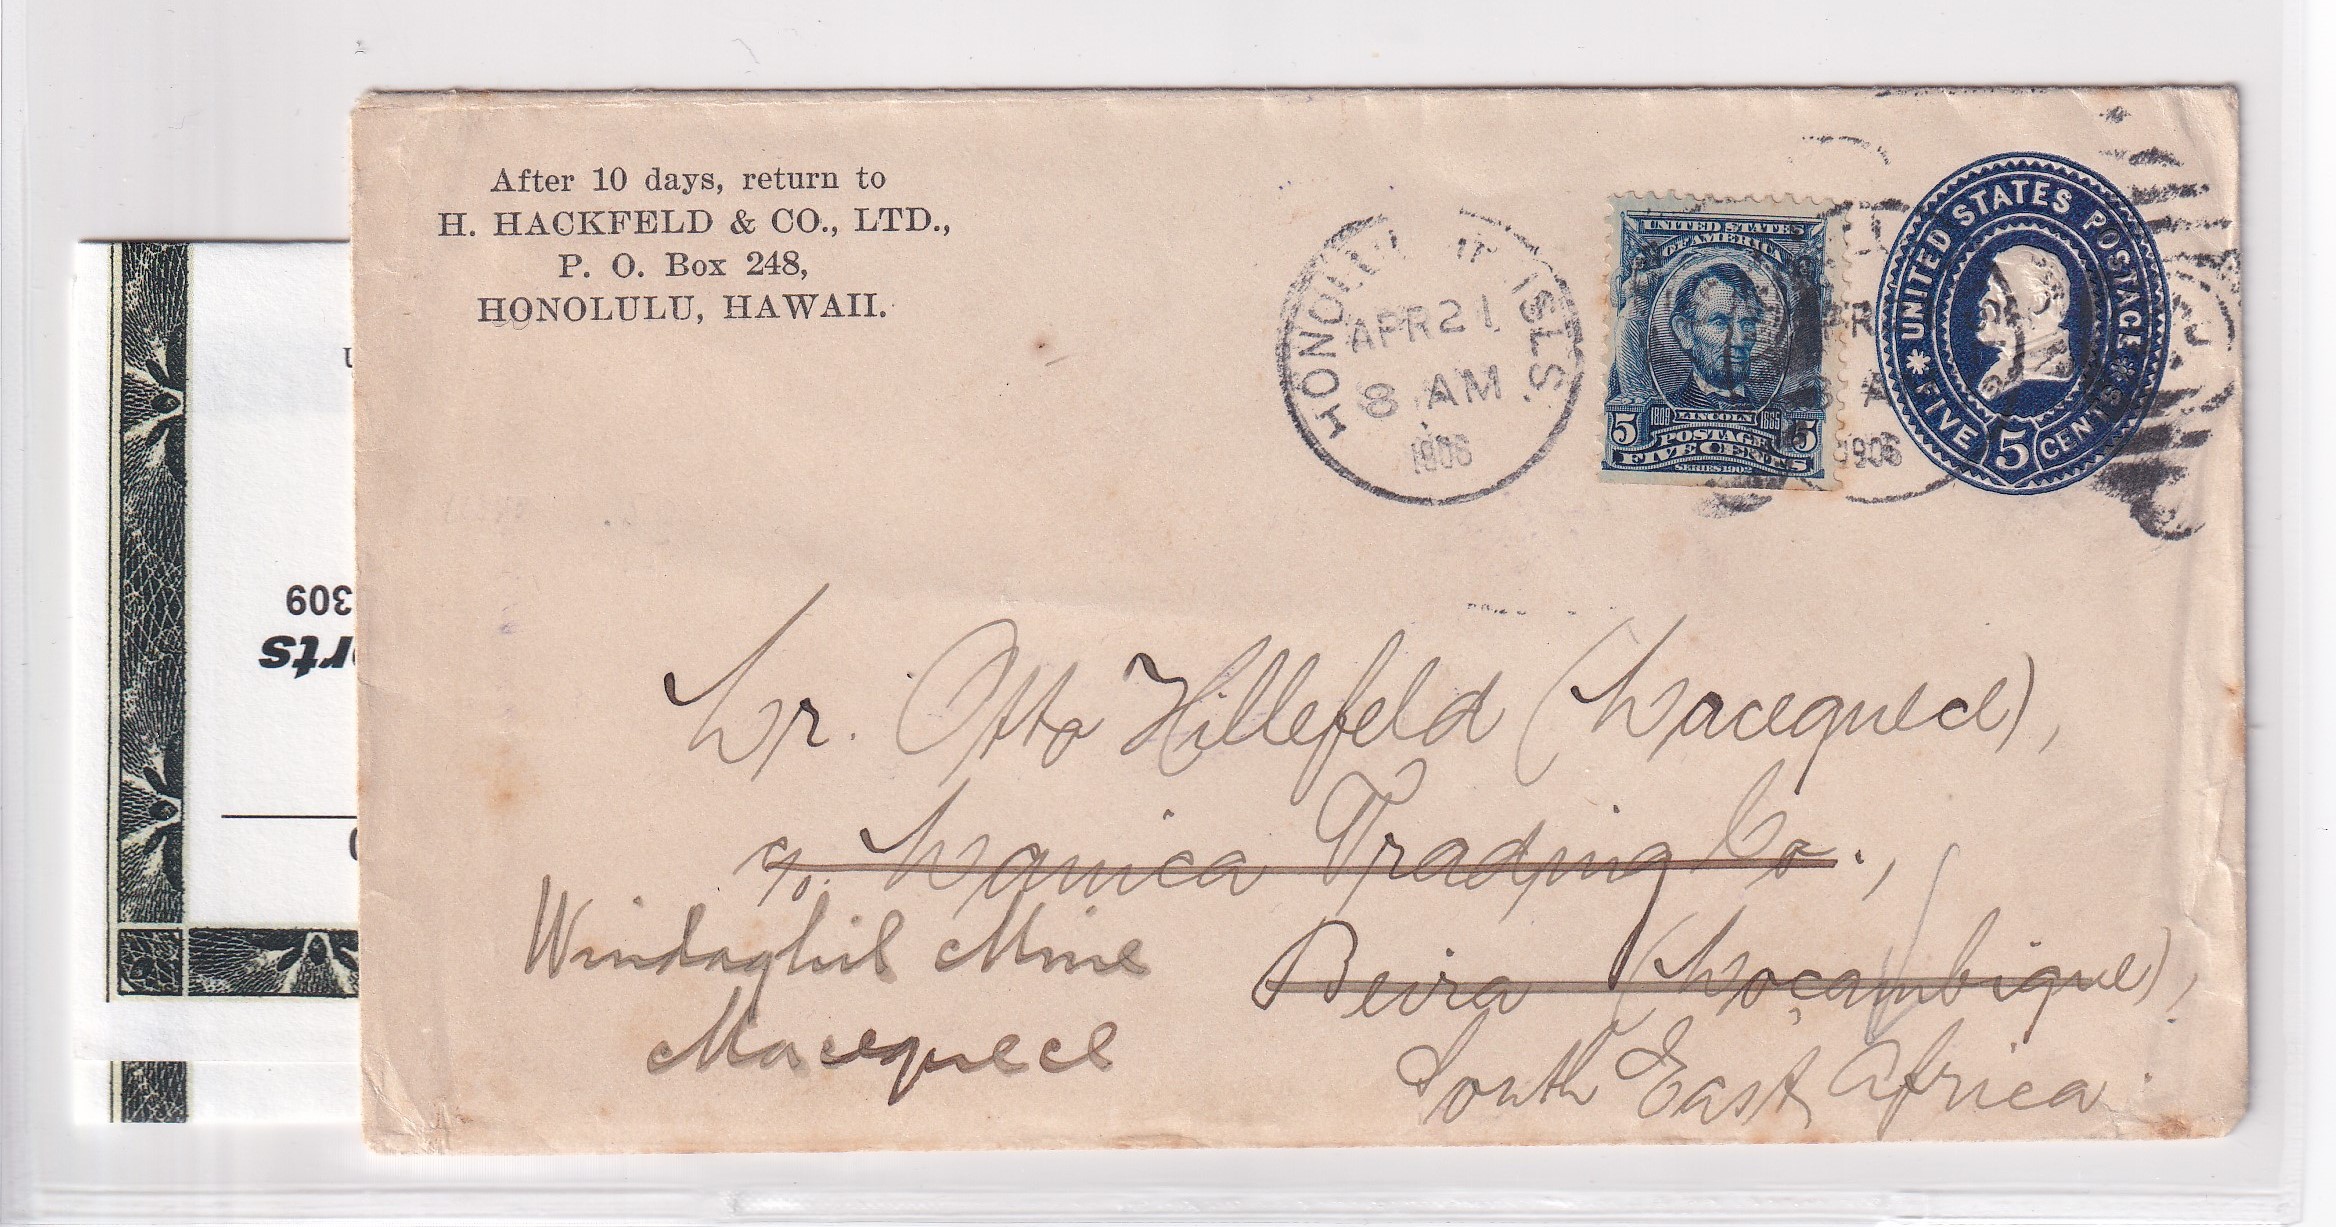 After 10 days, return to
H. HACKFELD & CO., LTD.,
P. O. Box 248,
HONOLULU, HAWAII.
HONOLULU ISLS.
APR 21
8 AM
1906
UNITED STATES
OF AMERICA
1809 LINCOLN 1865
5 POSTAGE 5
FIVE CENTS
SERIES 1902
UNITED STATES POSTAGE
FIVE 5 CENTS
1906
Mr. Otto Hillefeld (Macequece),
c/o. Manica Trading Co.,
Beira (Moçambique),
South East Africa.
Windaghil Mine
Macequece
309
rts